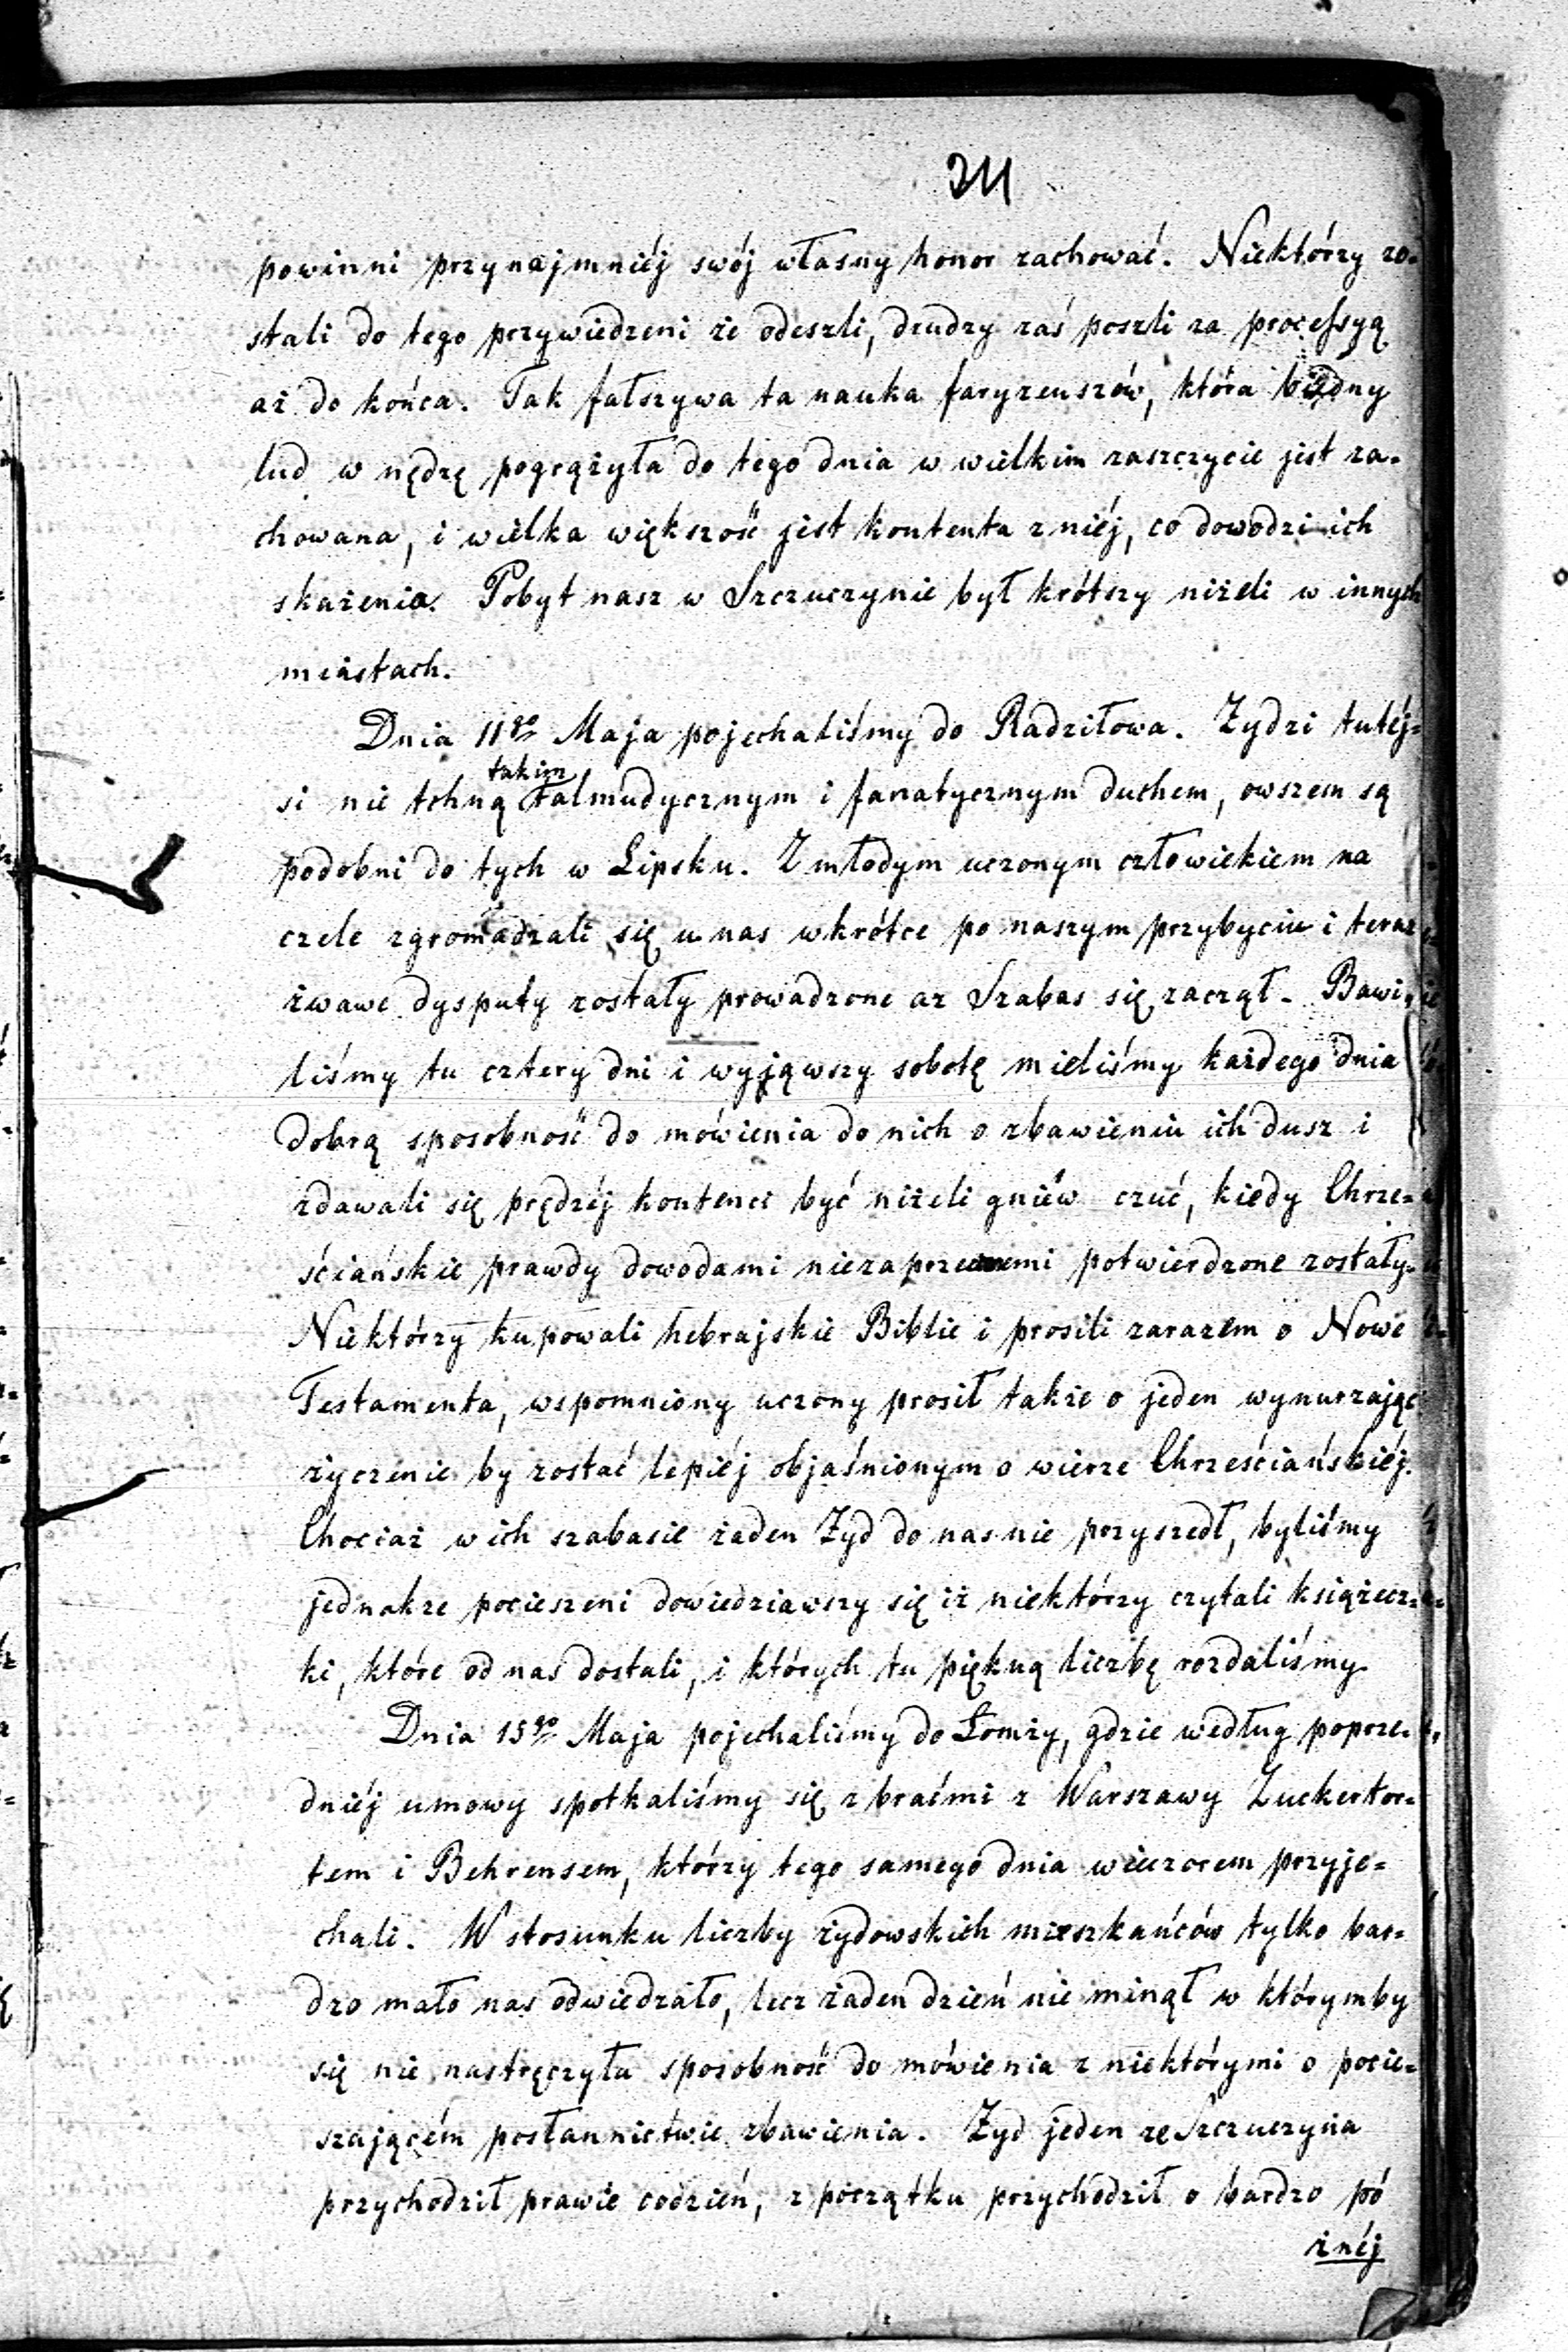 311
powinni przynajmniéj swój własny honor zachować. Niektórzy zo-
stali do tego przywiedzeni że odeszli, drudzy zaś poszli za processyą
aż do końca. Tak fałszywa ta nauka faryzeuszów, która biédny
lud w nędzę pogrążyła do tego dnia w wielkim zaszczycie jest za-
chowana, i wielka większość jest kontenta z niéj, co dowodzi ich
skażenia. Pobyt nasz w Szczuczynie był krótszy niżeli w innych
miastach.
Dnia 11go Maja pojechaliśmy do Radziłowa. Żydzi tutéj-
si nie tchną takim talmudycznym i fanatycznym duchem, owszem są
podobni do tych w Lipsku. Z młodym uczonym człowiekiem na
czele zgromadzali się u nas wkrótce po naszym przybyciu i teraz
żwawe dysputy zostały prowadzone az Szabas się zaczął. Bawi-
liśmy tu cztery dni i wyjąwszy sobotę mieliśmy każdego dnia
dobrą sposobność do mówienia do nich o zbawieniu ich dusz i
zdawali się prędzéj kontenci być niżeli gniéw czuć, kiedy Chrze-
ściańskie prawdy dowodami niezaprzeczonemi potwierdzone zostały.
Niektórzy kupowali hebrajskie Biblie i prosili zarazem o Nowe
Testamenta, wspomniony uczony prosił także o jeden wynurzając
życzenie by zostać lepiéj objaśnionym o wierze Chrześciańskiéj.
Chociaż w ich szabasie żaden Żyd do nas nie przyszedł, byliśmy
jednakze pocieszeni dowiedziawszy się iż niektórzy czytali książecz-
ki, które od nas dostali, i których tu piękną liczbę rozdaliśmy
Dnia 15go Maja pojechaliśmy do Łomży, gdzie według poprze-
dniéj umowy spotkaliśmy się z braćmi z Warszawy Zuckertor-
tem i Behrensem, którzy tego samego dnia wieczorem przyje-
chali. W stosunku liczby żydowskich mieszkańców tylko bar-
dzo mało nas odwiedzało, lecz żaden dzień nie minął w którymby
się nie nastręczyła sposobność do mówienia z niektórymi o pocie-
szającém posłannictwie zbawienia. Żyd jeden ze Szczuczyna
przychodził prawie codzień, z początku przychodził o bardzo pó
źnéj